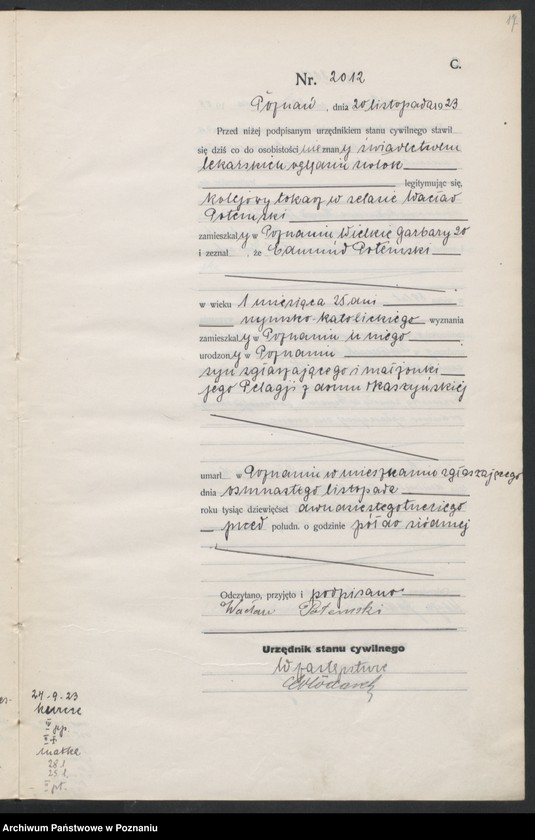 17
C.
Nr. 2012
Poznań, dnia 20 listopada 1923
Przed niżej podpisanym urzędnikiem stanu cywilnego stawił
się dziś co do osobistości nieznany świadectwem
lekarskich oględzin zwłok
legitymując się,
kolejowy tokarz w żelazie Wacław
Potemski
zamieszkały w Poznaniu Wielkie Garbary 20
i zeznał, że Edmund Potemski
w wieku 1 miesiąca 25 dni
rzymsko-katolickiego wyznania
zamieszkały w Poznaniu u niego
urodzony w Poznaniu
syn zgłaszającego i małżonki
jego Pelagji z domu Kaszyńskiej
umarł w Poznaniu w mieszkaniu zgłaszającego
dnia osmnastego listopada
roku tysiąc dziewięćset dwudziestego trzeciego
przed połudn. o godzinie pół do siódmej
Odczytano, przyjęto i podpisano
Wacław Potemski
Urzędnik stanu cywilnego
W zastępstwie
24-9-23
matka
28 l
25 l
Archiwum Państwowe w Poznaniu